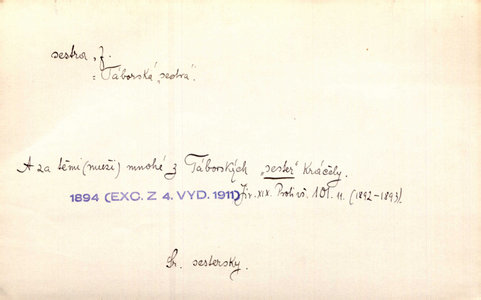 sestra, f.
: Táborská „sestra“.
A za těmi (muži) mnohé z Táborských „sester“ kráčely.
1894 (EXC. Z 4. VYD. 1911) Jir. XIX. Proti vš. 101. 11. (1892–1893).
Sr. sestersky.